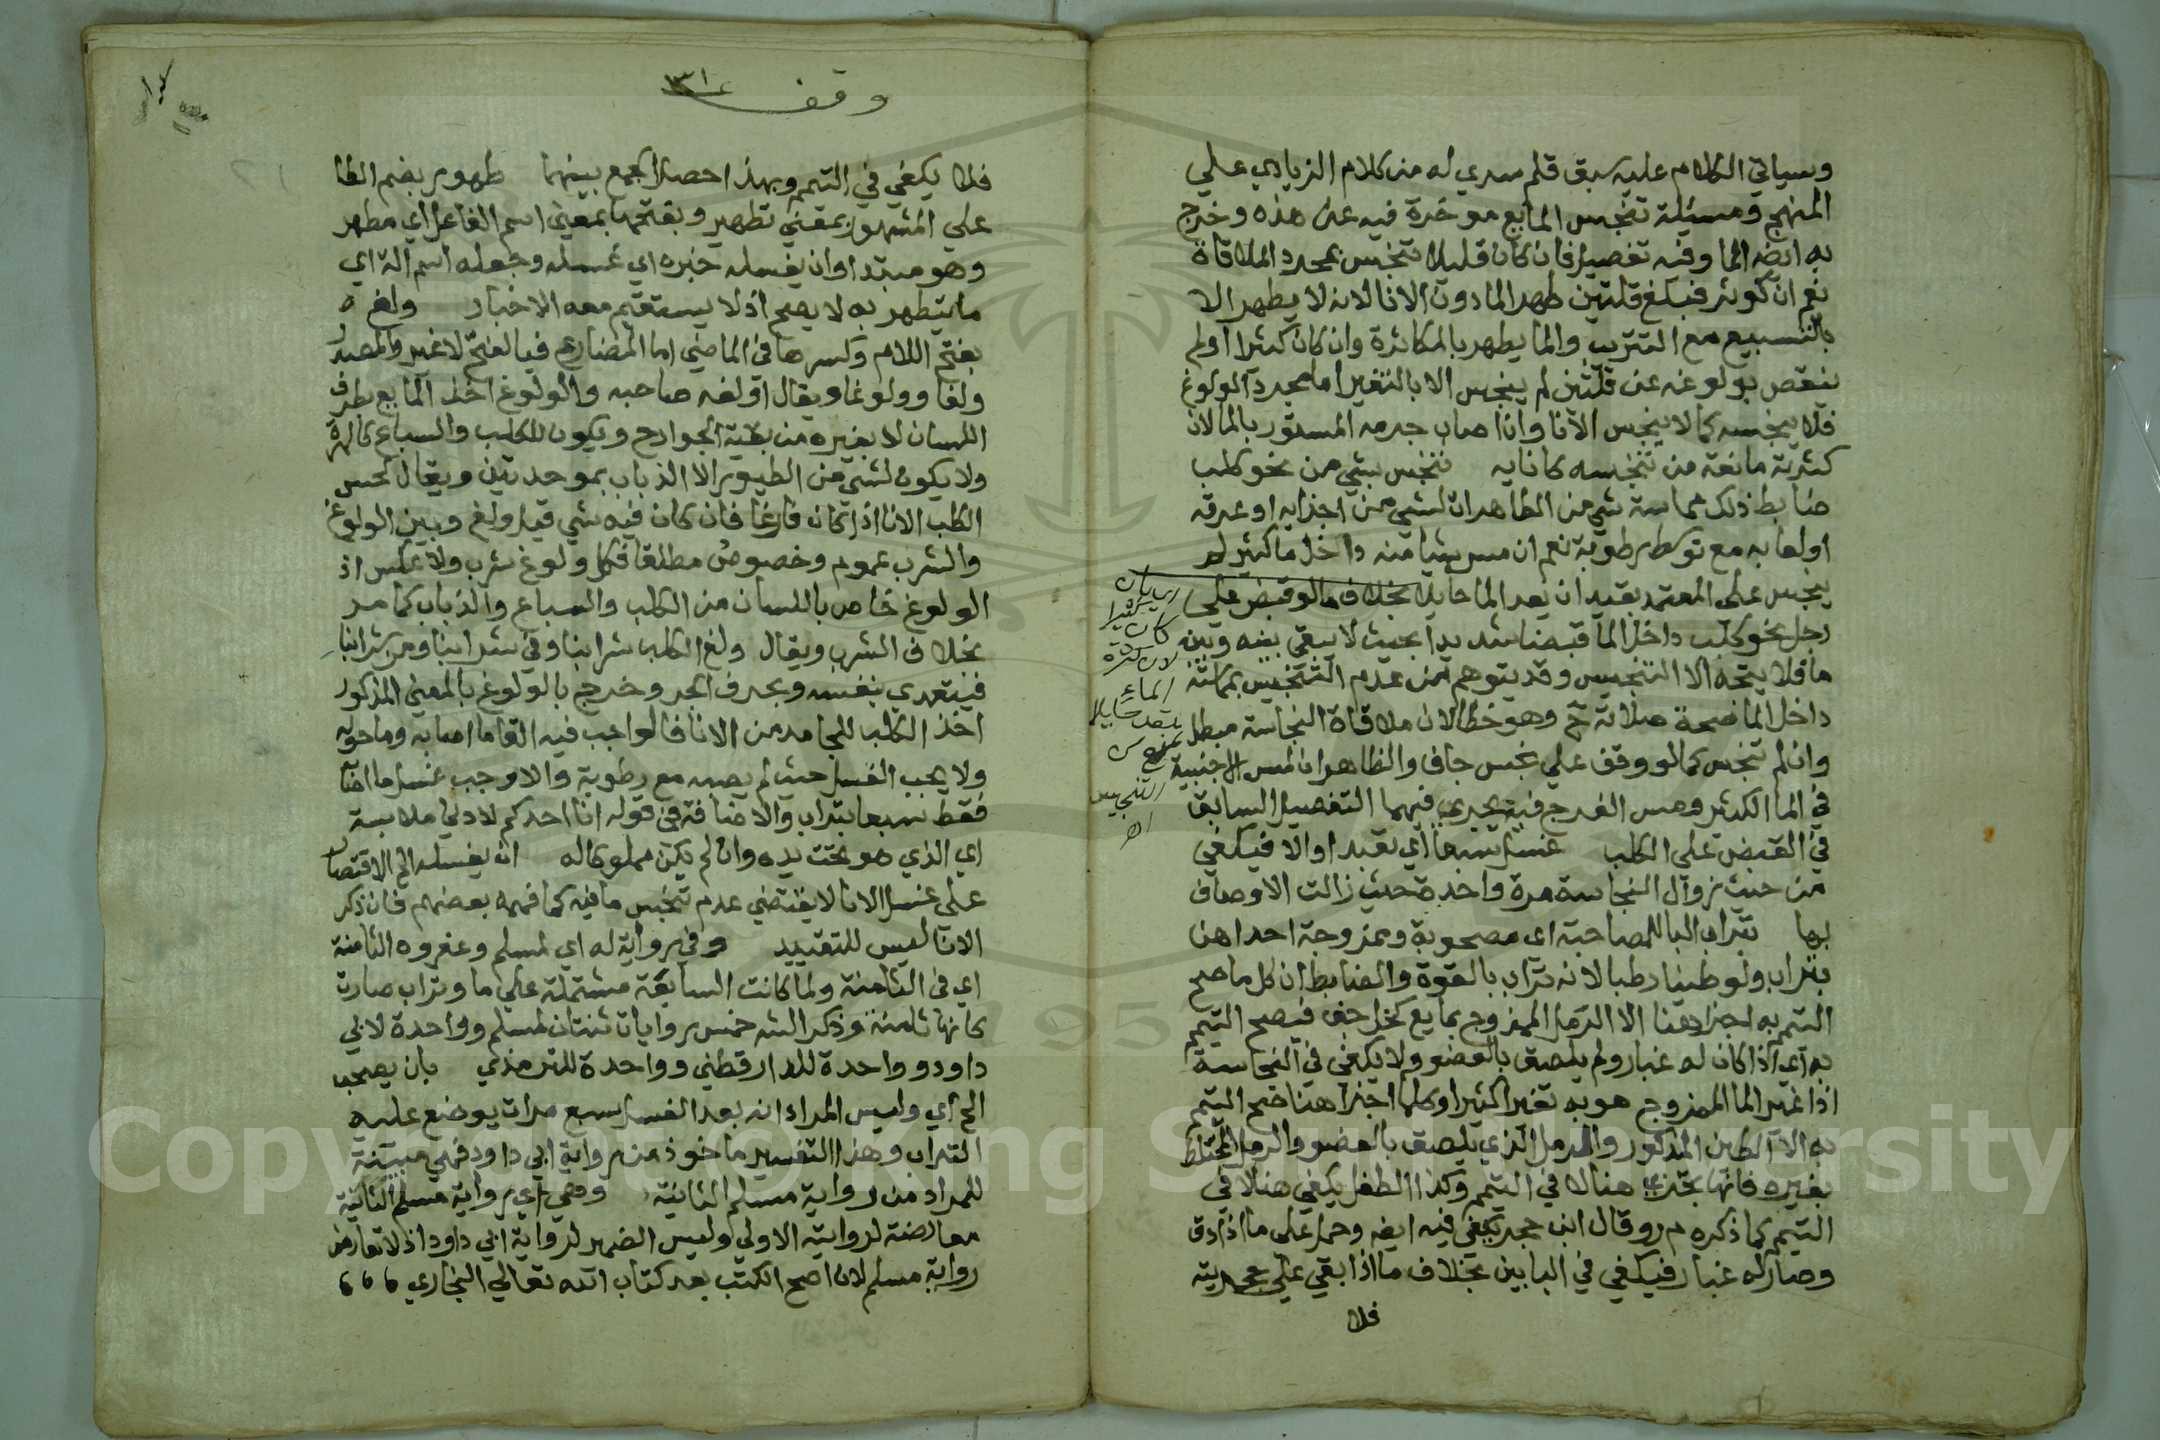 وسياتي الكلام عليه سبق قلم سري له من كلام الزيادي علي
المنهج ومسئلة تنجس المايع موخرة فيه عن هذه وخرج
به ايضا الما وفيه تفصيل فان كان قليلا تنجس بمجرد الملاقاة
نعم ان كوثر فبلغ قلتين طهر الما دون الانا لانه لا يطهر الا
بالتسبيع مع التتريب والما يطهر بالمكاثرة وان كان كثيرا ولم
ينقص بولوغه عن قلتين لم ينجس الا بالتغير اما مجرد الولوغ
فلا ينجسه كما لا ينجس الانا وان اصاب جرمه المستور بالما لان
كثرته مانعة من تنجسه كانايه تنجس بشي من نحو كلب
ضابط ذلك مماسة شي من الطاهرات لشي من اجزايه او عرقه
او لعابه مع توسط رطوبة نعم ان مس شيا منه داخل ما كثير لم
ينجس علي المعتمد بقيد ان يعد الما حايلا بخلاف ما لو قبض علي
رجل نحو كلب داخل الما قبضا شديدا بحيث لا يبقي بينه وبينه
ما فلا يتجه الا التنجيس وقد يتوهم من عدم التنجيس بمماسته
داخل الما صحة صلاته ح وهو خطا لان ملاقاة النجاسة مبطل
وان لم تنجس كما لو وقف علي نجس جاف والظاهر ان لمس الاجنبية
في الما الكثير ومس الفرج فيه يجري فيهما التفصيل السابق
في القبض علي الكلب غسل سبعا اي تعبدا والا فيكفي
من حيث زوال النجاسة مرة واحدة حيث زالت الاوصاف
بها بتراب البا للمصاحبة اي مصحوبة وممزوجة احداهن
بتراب ولو طينا رطبا لانه تراب بالقوة والضابط ان كل ما صح
التيمم به اجزا هنا الا الرمل الممزوج بمايع كخل جف فيصح التيمم
به اي اذا كان له غبار ولم يلصق بالعضو ولا يكفي في النجاسة
اذا غير الما الممزوج هو به تغيرا كثيرا وكلما اجزا هنا صح التيمم
به الا الطين المذكور والرمل الذي يلصق بالعضو والرمل المختلط
بغيره فانها تجزي هنا لا في التيمم وكذا الطفل يكفي هنا لا في
التيمم كما ذكره م ر وقال ابن حجر يكفي فيه ايضا وحمل علي ما اذا دق
وصار له غبار فيكفي في البابين بخلاف ما اذا بقي علي حجريته
فلا
كان كثيرا
لان كثرة
الماء
تعد حايلا
تمنع من
التنجيس
اهـ
وقف
فلا يكفي في التيمم وبهذا حصل الجمع بينهما طهور بضم الطا
علي المشهور بمعني تطهير وبفتحها بمعني اسم الفاعل اي مطهر
وهو مبتدا وان يغسله خبره اي غسله وجعله اسم الة اي
ما يتطهر به لا يصح اذ لا يستقيم معه الاخبار ولغ
بفتح اللام وكسرها في الماضي اما المضارع فبالفتح لا غير والمصدر
ولغا وولوغا ويقال اولغه صاحبه والولوغ اخذ المايع بطرف
اللسان لا بغيره من بقية الجوارح ويكون للكلب والسباع كالهرة
ولا يكون لشي من الطيور الا الذباب بموحدتين ويقال لحس
الكلب الانا اذا كان فارغا فان كان فيه شي قيل ولغ وبين الولوغ
والشرب عموم وخصوص مطلقا فكل ولوغ شرب ولا عكس اذ
الولوغ خاص باللسان من الكلب والسباع والذباب كما مر
بخلاف الشرب ويقال ولغ الكلب شرابنا وفي شرابنا ومن شرابنا
فيتعدي بنفسه وبحرف الجر وخرج بالولوغ بالمعني المذكور
اخذ الكلب للجامد من الانا فالواجب فيه القا ما اصابه وما حوله
ولا يجب الغسل حيث لم يصبه مع رطوبة والا وجب غسل ما اصابه
فقط سبعا بتراب والاضافة في قوله انا احدكم لادني ملابسة
اي الذي هو تحت يده وان لم يكن مملوكا له ان يغسله الخ الاقتصار
علي غسل الانا لا يقتضي عدم تنجس ما فيه كما فهمه بعضهم فان ذكر
الانا ليس للتقييد وفي رواية له اي لمسلم وعفروه الثامنة
اي في الثامنة ولما كانت السابعة مشتملة علي ما وتراب صارت
كانها ثامنة وذكر الش خمس روايات ثنتان لمسلم وواحدة لابي
داود وواحدة للدارقطني وواحدة للترمذي بان يصحب
الخ اي وليس المراد انه بعد الغسل سبع مرات يوضع عليه
التراب وهذا التفسير ماخوذ من رواية ابي داود فهي مبينة
للمراد من رواية مسلم الثانية وهي اي رواية مسلم الثانية
معارضة لروايته الاولي وليس الضمير لرواية ابي داود اذ لا تعارض
رواية مسلم لان اصح الكتب بعد كتاب الله تعالي البخاري
Copyright © King Saud University
1957